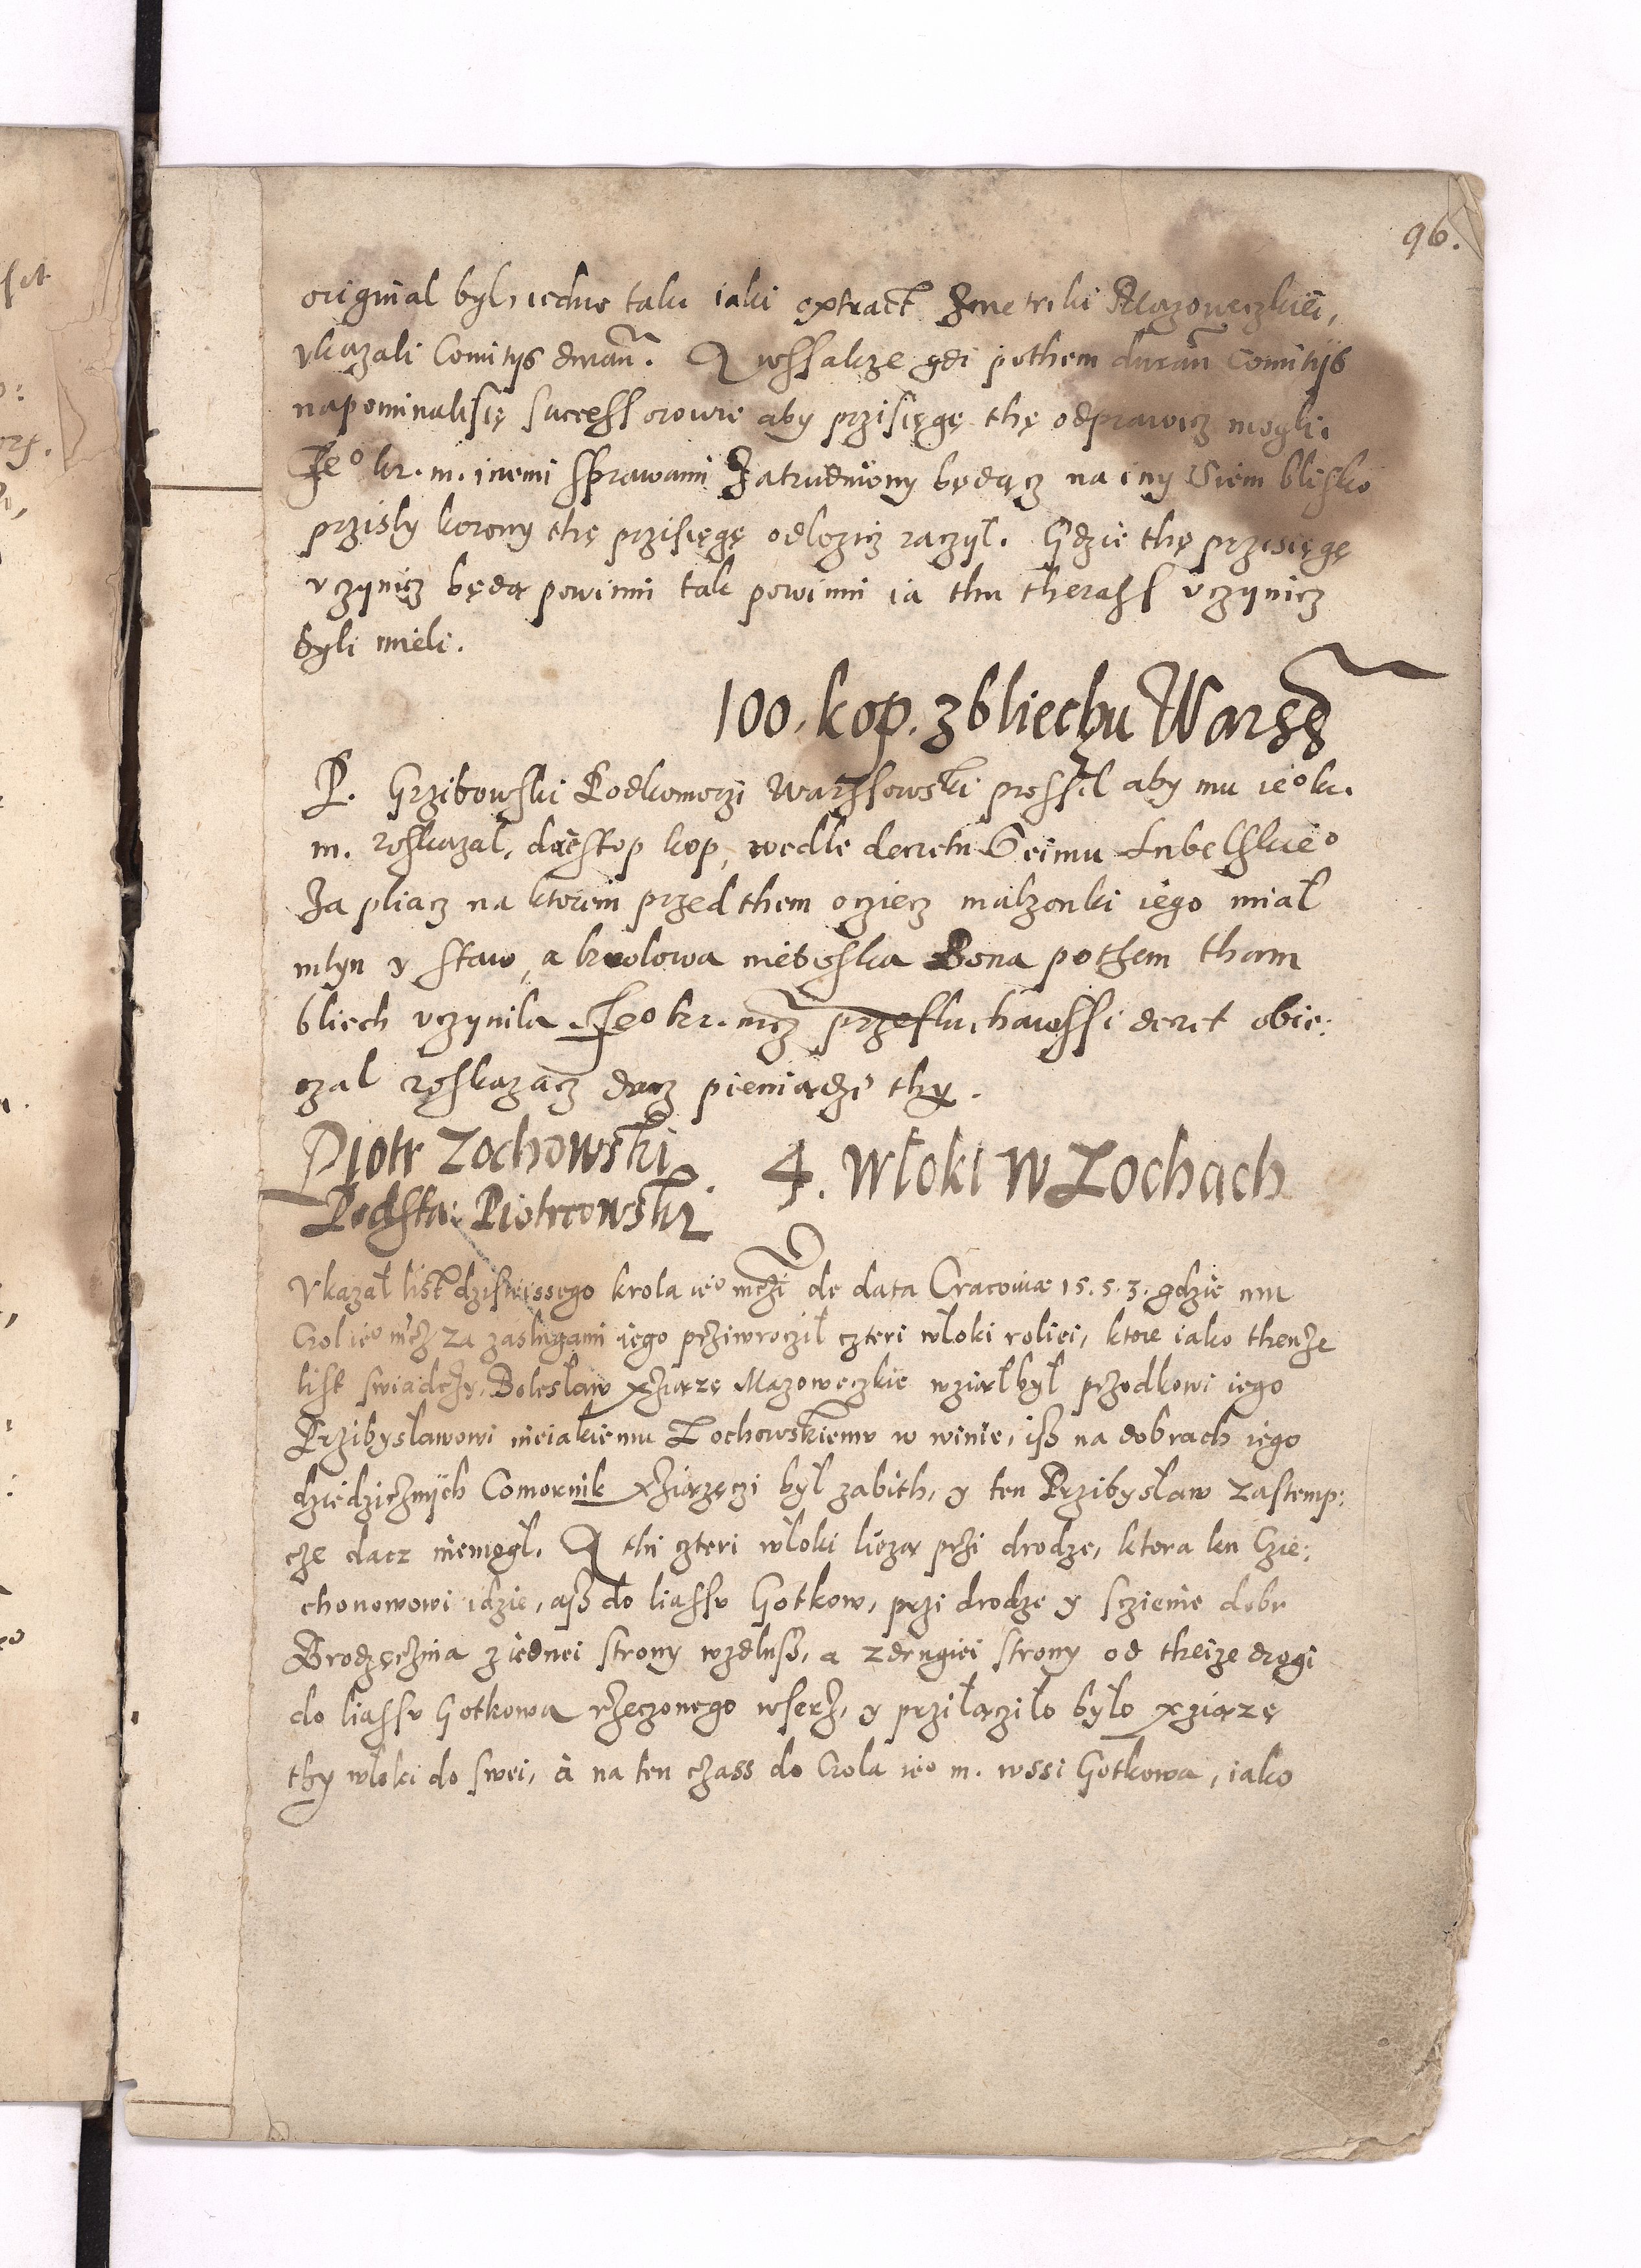 96.
original byl, iedno taki iaki extract Zmetriki Mazoweczkiei,
vkazali Comitijs duran. A wssakze gdi pothem duran Comitijs
napominalisię successorowie aby przisięgę thę odprawicz mogli.
Jeo kr. m. inemi sprawami Zatrudniony będącz na iny Siem blisko
przisly korony thę przisięgę odlozicz raczyl. Gdzie thę przisięgę
vczynicz będą powinni tak powinni ia thu therass vczynicz
byli mieli.
100. kop. z bliechu Warss
P. Grzibowski Podkomorzi Warssowski prossil aby mu ieo k.
m. roskazal, dac stop kop, wedle decretu Seimu Lubelskieo
Za pliacz na ktorim przed them ocziecz malzonki iego mial
mlyn y staw, a krolowa nieboska Bona pothem tham
bliech vczynila. Jeo kr. mcz przesluchawssi decret obie:
czal roskazacz dacz pieniądzi thy.
Piotr Zochowski
Podsta: Piotrcowski
4. Wloki w Zochach
Vkazal list dzisieissego krola ieo mczi de data Cracoviæ 15.5.3. gdzie mu
Crol ieo mcz za zaslugami iego prziwroczil czteri wloki roliei, ktore iako thenze
list swiadczy, Boleslaw xziązę Mazoweczkie wziąl byl przodkowi iego
Przibyslawowi nieiakiemu Zochowskiemv w winie, iss na dobrach iego
dziedzicznijch Comornik xziązęczi byl zabith, y ten Przibyslaw zastemp:
cze dacz niemogl. A thi czteri wloki liezą przi drodze, ktora ku Czie:
chonowowi idzie, ass do liassu Gotkow, przi drodze y sczienie dobr
Brodzęczina z iednei strony wzdluss, a z drugiei strony od theize drogi
do liassv Gotkowa rzeczonego wserz, y przilączilo bylo xziązę
thy wloki do swei, a na ten czass do Crola ieo m. wssi Gotkowa, iako